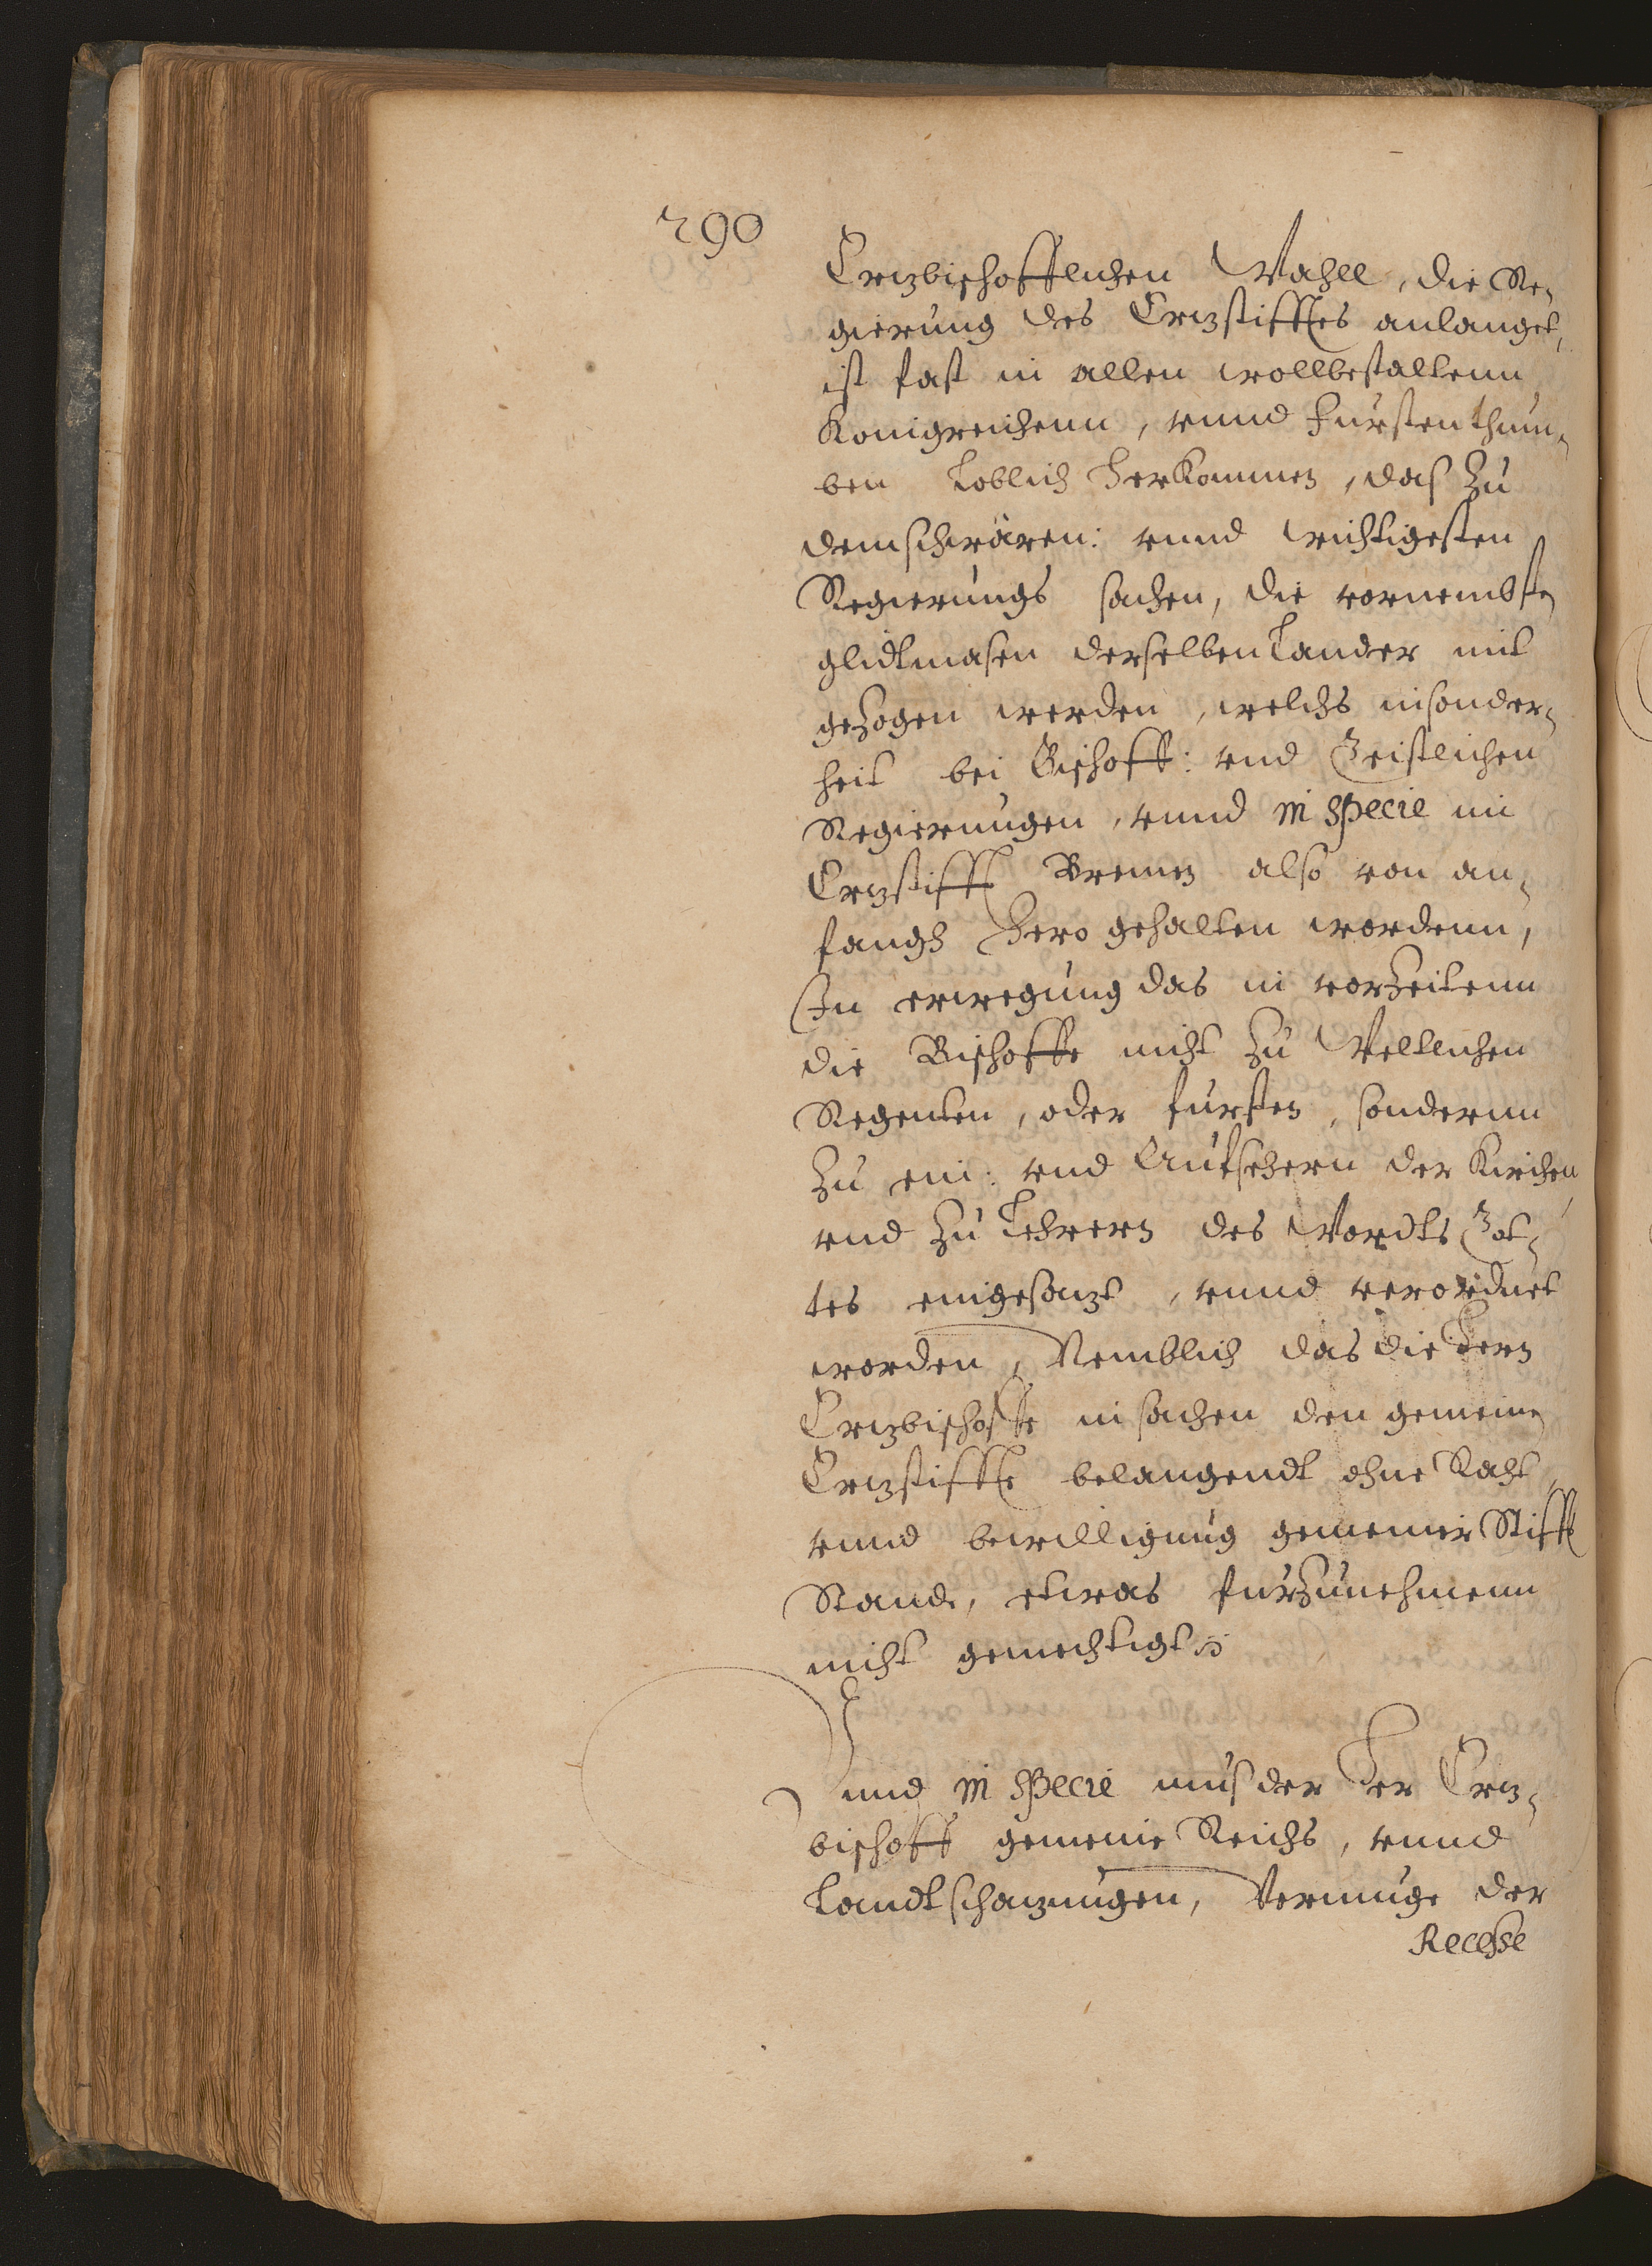 290
Ertzbischofflichen Wahll, die Re-
gierung des Ertzstifftes anlanget,
ist fast in allen wollbestaltenn
Konigreichenn, vnnd Furstenthum-
ben Loblich Herkommen, das zu
dem schwären: vnnd wichtigesten
Regierungs sachen, die vornembste
glidtmasen derselben Lander mit
gezogen werden, welchs insonder-
heit bei Bischoff: vnd Geistlichen
Regierungen, vnnd in specie im
Ertzstifft Bremen also von an-
fangs Hero gehalten wordenn,
In erwegung das in vorzeitenn
die Bischoffe nicht zu Weltlichen
Regenten, oder fursten, sondernn
zu ein: vnd Aufsehern der Kirchen
vnd zu Lehrern des Wordts Got-
tes eingesatzt, vnnd verordnet
worden, Nemblich das die Hern
Ertzbischoffe in sachen den gemeinen
Ertzstiffte belangendt ohne Raht
vnnd bewilligung gemeiner Stifft
Stande, etwas furzunehmenn
nicht gemechtigt
Unnd in specie mus der Her Ertz-
bischoff gemeine Reichs, vnnd
Landtschatzungen, Vermuge der
Recesse